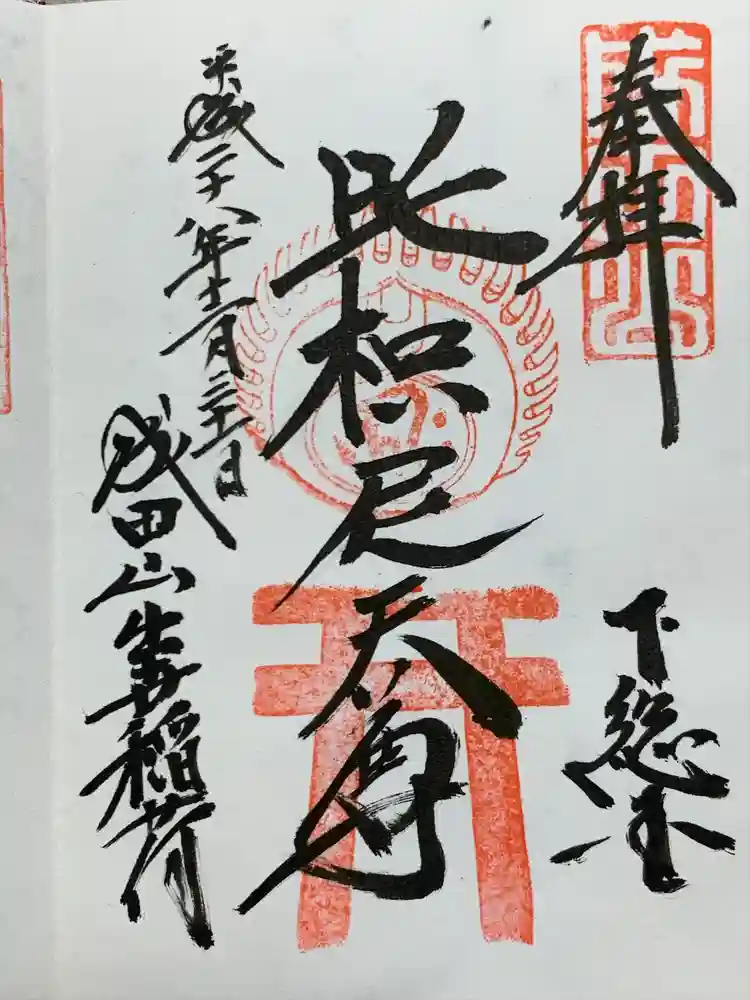 奉拝
下総
吒枳尼天尊
平成二十八年十二月三十一日
成田山出世稲荷
成田山